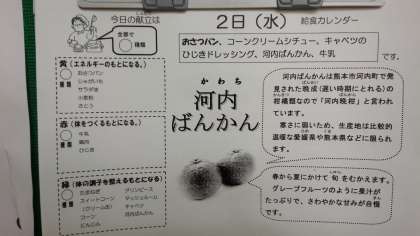 今日の献立は
全部で
種類
2日(水) 給食カレンダー
おさつパン、コーンクリームシチュー、キャベツの
ひじきドレッシング、河内ばんかん、牛乳
です。
黄(エネルギーのもとになる。)
種類
おさつパン
じゃがいも
サラダ油
小麦粉
さとう
赤(体をつくるもとになる。)
種類
牛乳
鶏肉
ひじき
緑(体の調子を整えるもとになる)
種類
たまねぎ
スイートコーン
(クリーム缶)
コーン
にんじん
グリンピース
マッシュルーム
キャベツ
河内ばんかん
かわち
河内
ばんかん
河内ばんかんは熊本市河内町で発
見された晩成(遅い時期にとれる)の
柑橘類なので「河内晩柑」と言われ
ています。
寒さに弱いため、生産地は比較的
温暖な愛媛県や熊本県などに限られ
ます。
春から夏にかけて旬をむかえます。
グレープフルーツのように果汁が
たっぷりで、さわやかな甘みが自慢
です。